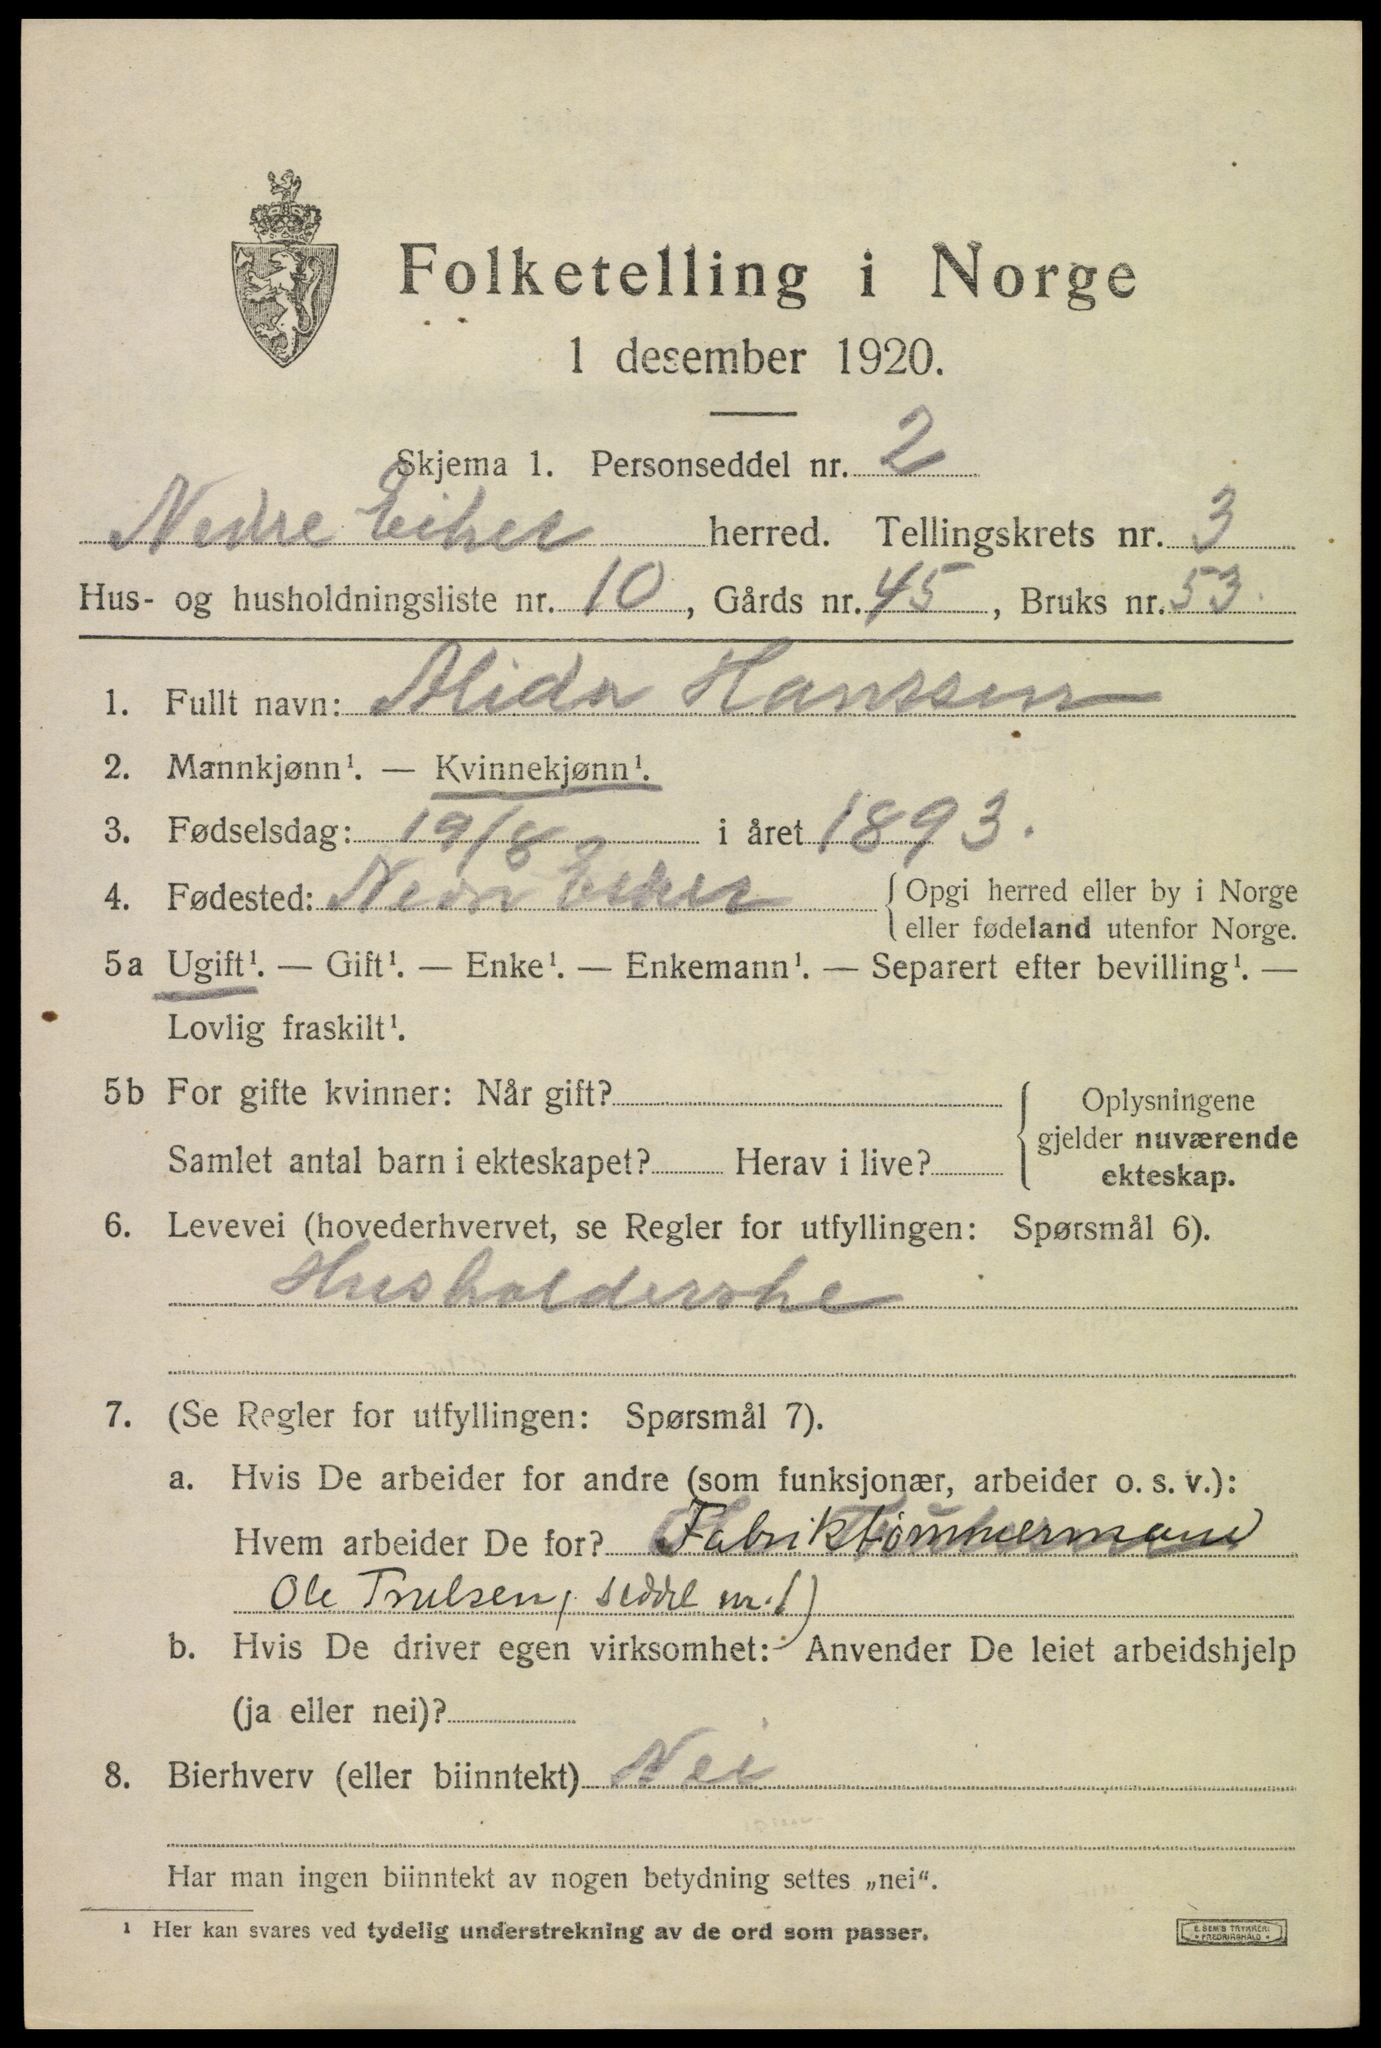 Folketelling i Norge
1 desember 1920.
Skjema 1. Personseddel nr. 2
Nedre Eiker herred. Tellingskrets nr. 3
Hus- og husholdningsliste nr. 10, Gårds nr. 45, Bruks nr. 53.
1. Fullt navn: Alida Hanssen
2. Mannkjønn¹. — Kvinnekjønn¹.
3. Fødselsdag: 19/8 i året 1893.
4. Fødested: Nedre Eiker { Opgi herred eller by i Norge
eller fødeland utenfor Norge.
5a Ugift¹. — Gift¹. — Enke¹. — Enkemann¹. — Separert efter bevilling¹. —
Lovlig fraskilt¹.
5b For gifte kvinner: Når gift?
Samlet antal barn i ekteskapet? Herav i live?
{ Oplysningene
gjelder nuværende
ekteskap.
6. Levevei (hovederhvervet, se Regler for utfyllingen: Spørsmål 6).
Husholderske
7. (Se Regler for utfyllingen: Spørsmål 7).
a. Hvis De arbeider for andre (som funksjonær, arbeider o. s. v.):
Hvem arbeider De for? Fabriktømmermand
Ole Trulsen, seddel nr. 1)
b. Hvis De driver egen virksomhet: Anvender De leiet arbeidshjelp
(ja eller nei)?
8. Bierhverv (eller biinntekt) Nei
Har man ingen biinntekt av nogen betydning settes „nei“.
¹ Her kan svares ved tydelig understrekning av de ord som passer.
E. SEM'S TRYKKERI
FREDRIKSHALD